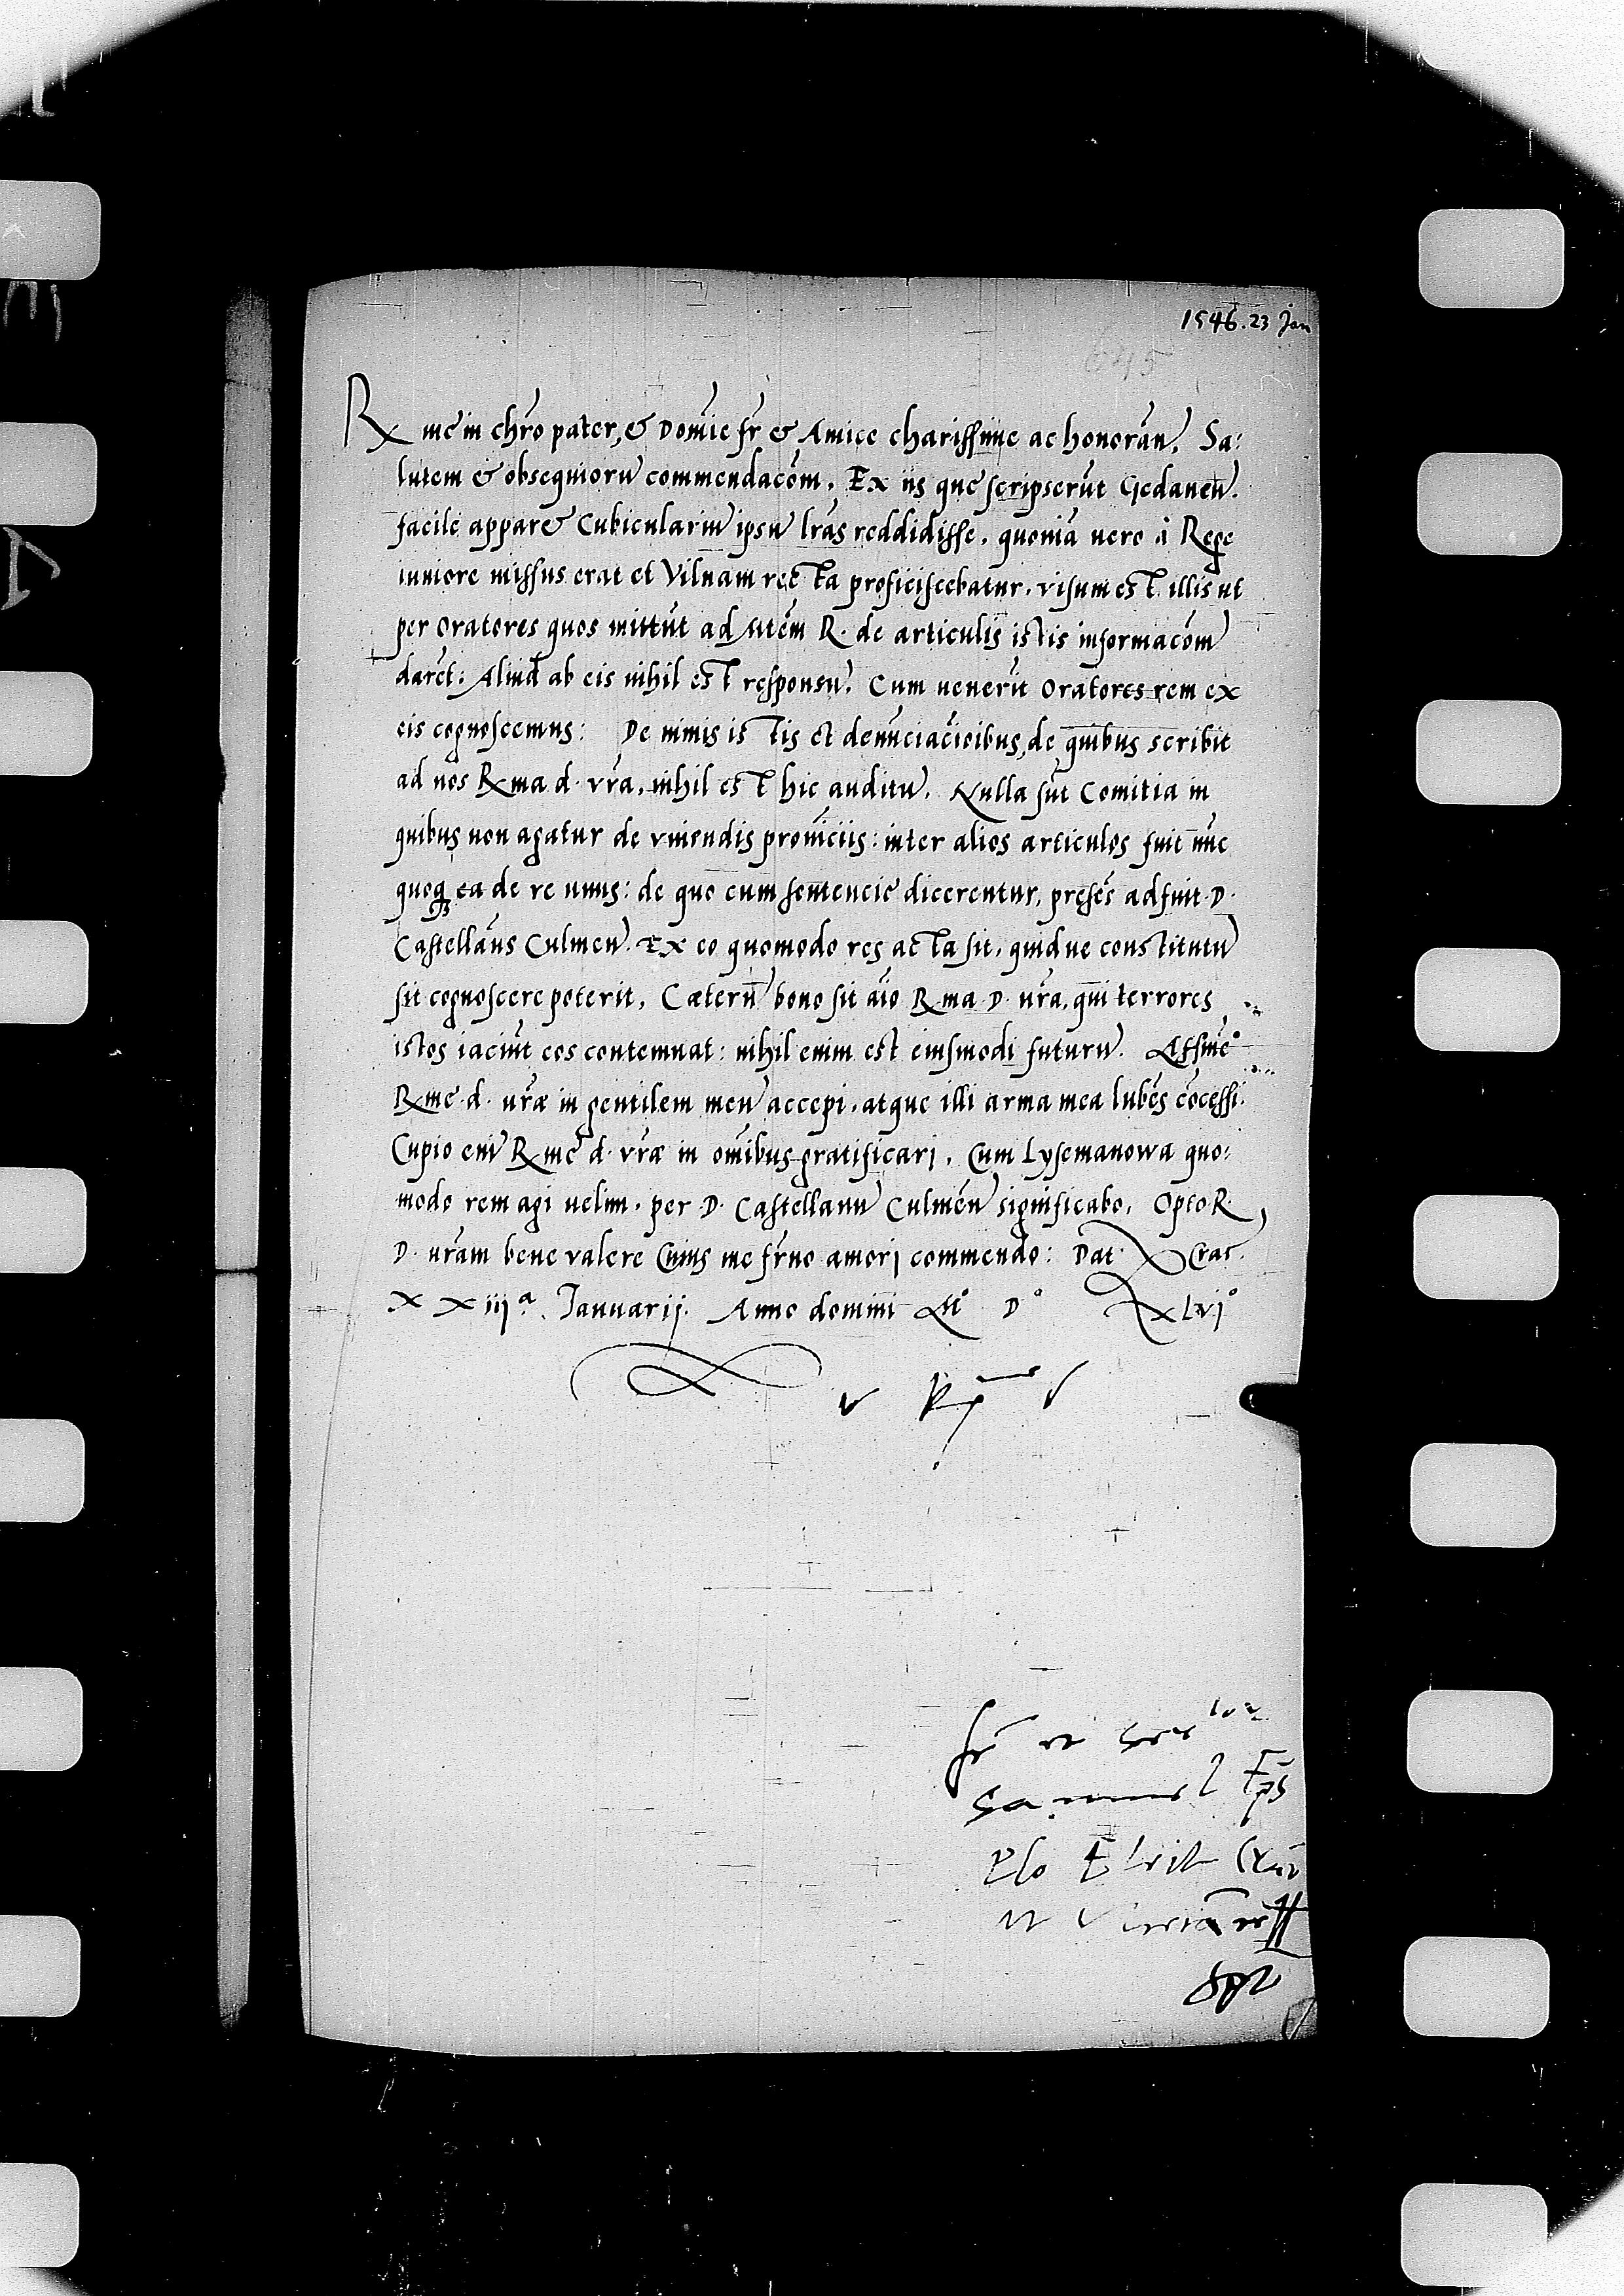 1546. 23 Jan
645
Rme in chro pater, & Domie fr & Amice charissime ac honoran. Sa:
lutem & obsequioru commendacom. Ex iis que scripserut Gedanen.
facile appare& Cubiculariu ipsu lras reddidisse. quonia uero à Rege
iuniore missus erat et Vilnam recta proficiscebatur. visum est illis ut
per Oratores quos mittut ad Mtem R. de articulis istis informacom
daret: Aliud ab eis nihil est responsu. Cum uenerit Oratores rem ex
eis cognoscemus: De minis istis et denunciacioibus, de quibus scribit
ad nos Rma d. vra, nihil est hic auditu. Nulla sut Comitia in
quibus non agatur de vniendis prouiciis: inter alios articulos fuit nuc
quoq ea de re unus: de quo cum sentencie dicerentur, preses adfuit D.
Castellanus Culmen. Ex eo quomodo res acta sit, quidue constitutu
sit cognoscere poterit. Cæteru bono sit aio Rma D. ura, qui terrores
istos iaciut eos contemnat: nihil enim est eiusmodi futuru.
Rme d. uræ in gentilem meu accepi, atque illi arma mea lubes cocessi.
Cupio eni Rme d. vræ in omibus gratificari. Cum Lysemanowa quo:
modo rem agi uelim, per D. Castellanu Culmen significabo. Opto R.
D. uram bene valere Cuius me frno amori commendo: Dat Crac.
XXiij a. Januarij. Anno domini Mo Do XLvjo
V R D
fr et
Samuel Eps
Plo Elect Crac